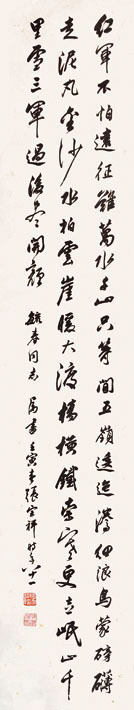 红军不怕远征难萬水千山只等闲五嶺逶迤腾细浪乌蒙磅礴
走泥丸金沙水拍雲崖暖大渡橋横鐵索寒更喜岷山千
里雪三军過後盡開颜
继春同志属书壬寅冬張宗祥时年八十一